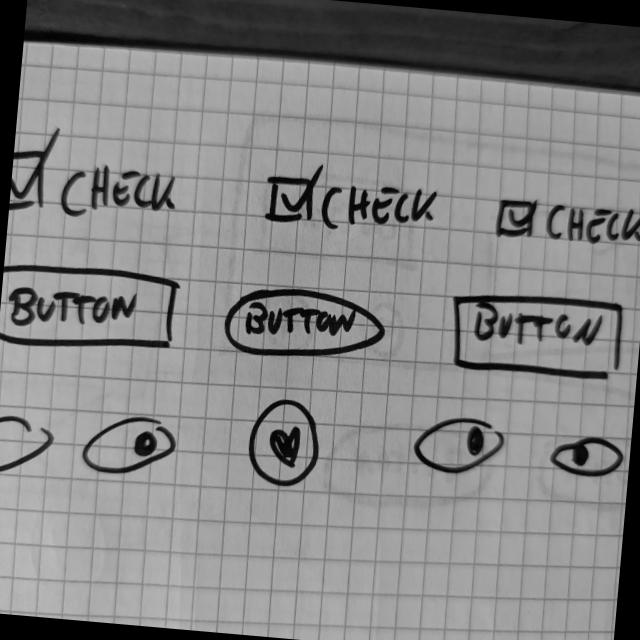 CHECK CHECK CHECK
BUTTON BUTTON BUTTON